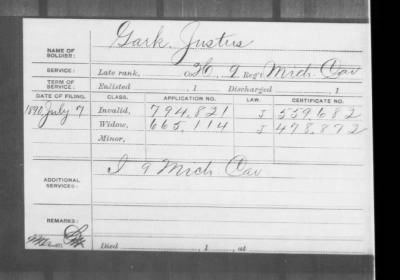 NAME OF SOLDIER: Gark, Justus
SERVICE: Late rank, Co. H, 9 Reg't Mich. Cav
TERM OF SERVICE: Enlisted , 1 Discharged , 1
DATE OF FILING. CLASS. APPLICATION NO. LAW. CERTIFICATE NO.
1890 July 7 Invalid, 794,821 J 559,682
Widow, 665,114 J 478,872
Minor,
ADDITIONAL SERVICES: I 9 Mich Cav
REMARKS:
Died , 1 , at